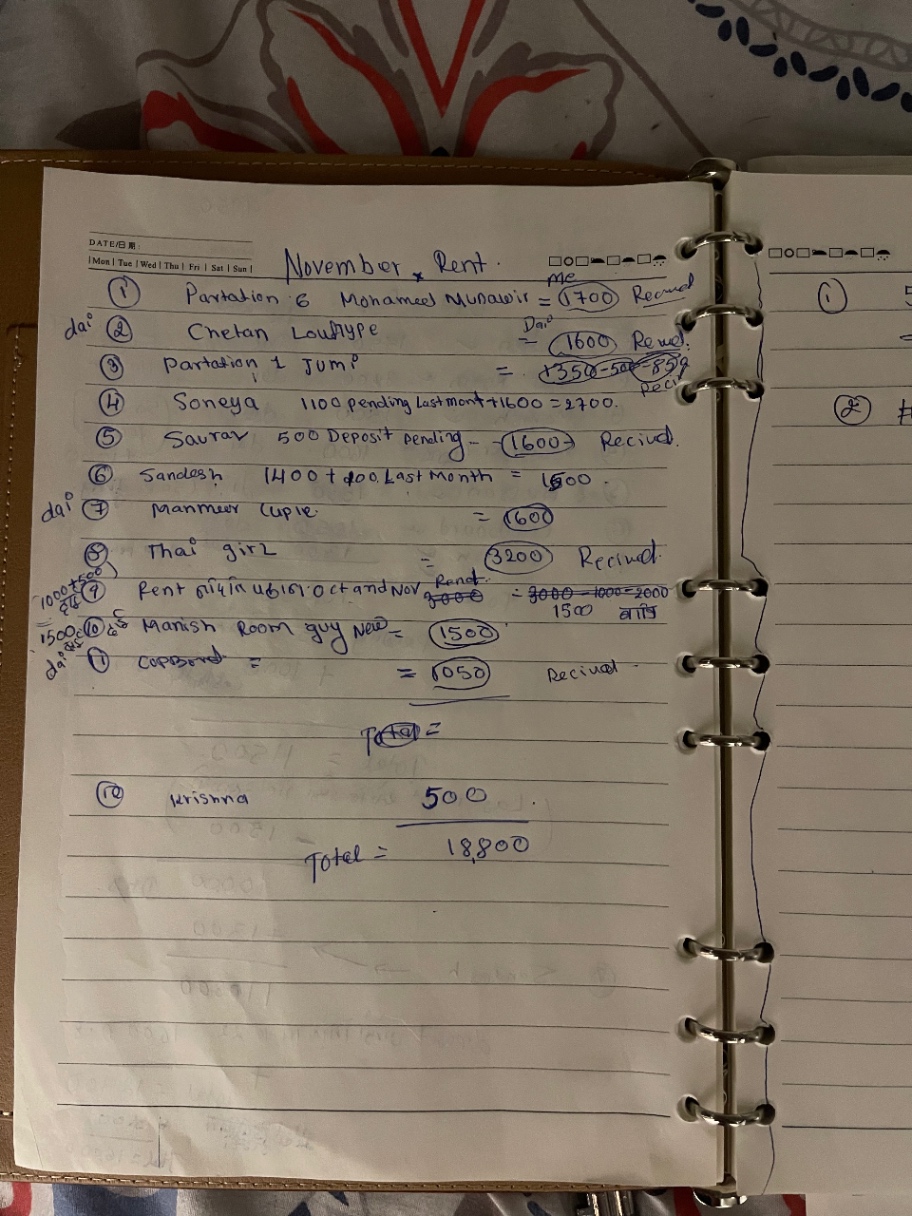 DATE/日期:
Mon | Tue | Wed | Thu | Fri | Sat | Sun
November Rent.
me
① Partation 6 Mohameed Munawir = 1700 Recived
dai ② Chetan = 1600
Dai
③ Partation 1 Jumi = 1350-500-850
④ Soneya 1100 pending Last mont + 1600 = 2700.
⑤ Saurav 500 Deposit pending - 1600 Recived.
⑥ Sandesh 1400 + Last Month = 1500.
dai ⑦ Manmeer Cuple = 1600
⑧ Thai girl = 3200 Recived.
1000+500
⑨ Rent Oct and Nov 3000 = 3000 - 1000 = 2000
1500
1500 ⑩ Manish Room guy New = 1500
dai ⑪ CopBord = = 1050 Recived
Total =
⑫ Krishna 500
Total = 18,800
①
②